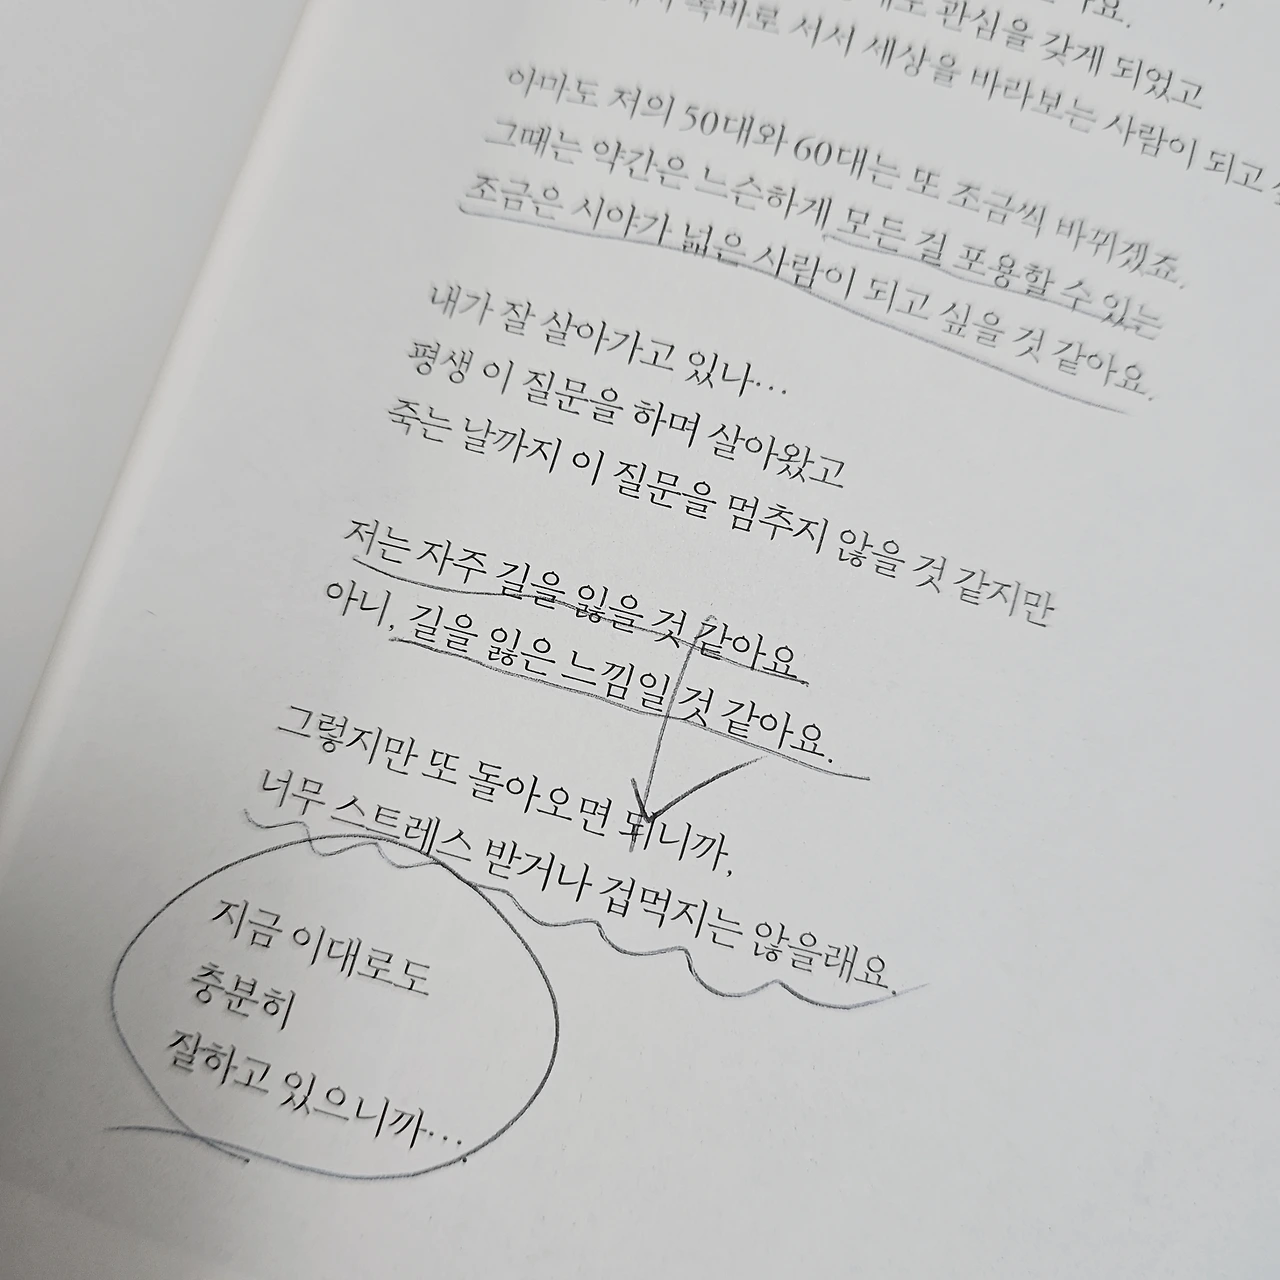 관심을 갖게 되었고
똑바로 서서 세상을 바라보는 사람이 되고
아마도 저의 50대와 60대는 또 조금씩 바뀌겠죠.
그때는 약간은 느슨하게 모든 걸 포용할 수 있는
조금은 시야가 넓은 사람이 되고 싶을 것 같아요.
내가 잘 살아가고 있나…
평생 이 질문을 하며 살아왔고
죽는 날까지 이 질문을 멈추지 않을 것 같지만
저는 자주 길을 잃을 것 같아요
아니, 길을 잃은 느낌일 것 같아요.
그렇지만 또 돌아오면 되니까,
너무 스트레스 받거나 겁먹지는 않을래요.
지금 이대로도
충분히
잘하고 있으니까…